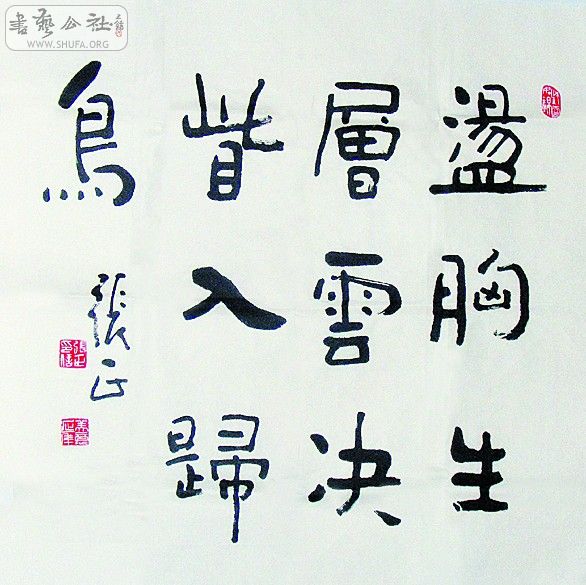 盪胸生
層雲决
眥入歸
鳥
張正
書藝公社
WWW.SHUFA.ORG